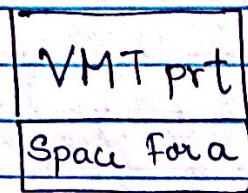 VMT prt
Space for a